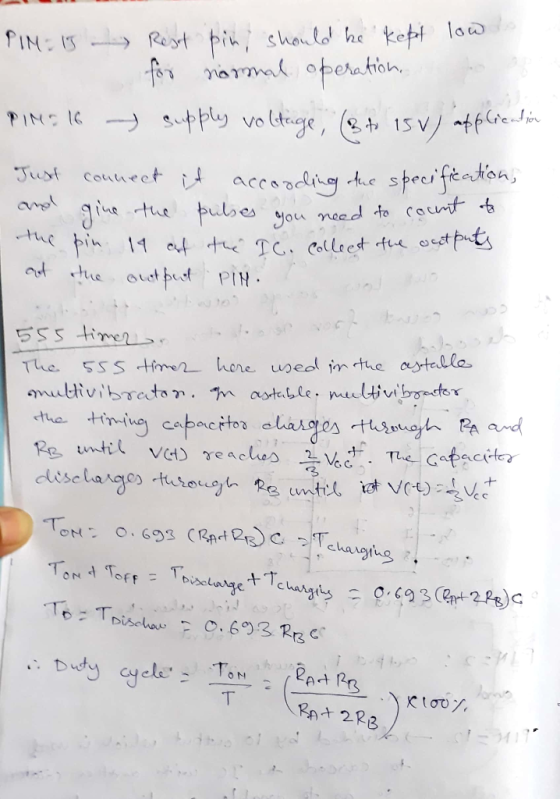 PIN: 15 → Rest pin, should be kept low
for normal operation.
PIN: 16 → supply voltage, (3 to 15V) application
Just connect it according the specification,
and give the pulses you need to count to
the pin 14 of the IC. collect the outputs
at the output PIN.
555 timer:
The 555 timer here used in the astable
multivibrator. In astable multivibrator
the timing capacitor charges through RA and
RB until V(t) reaches 2/3 Vcc+. The Capacitor
discharges through RB until V(t) = 1/3 Vcc+
TON = 0.693 (RA+RB)C = Tcharging
TON + TOFF = TDischarge + Tcharging = 0.693 (RA+2RB)C
TD = TDischar = 0.693 RB C
∴ Duty cycle = TON/T = (RA+RB/RA+2RB) × 100%